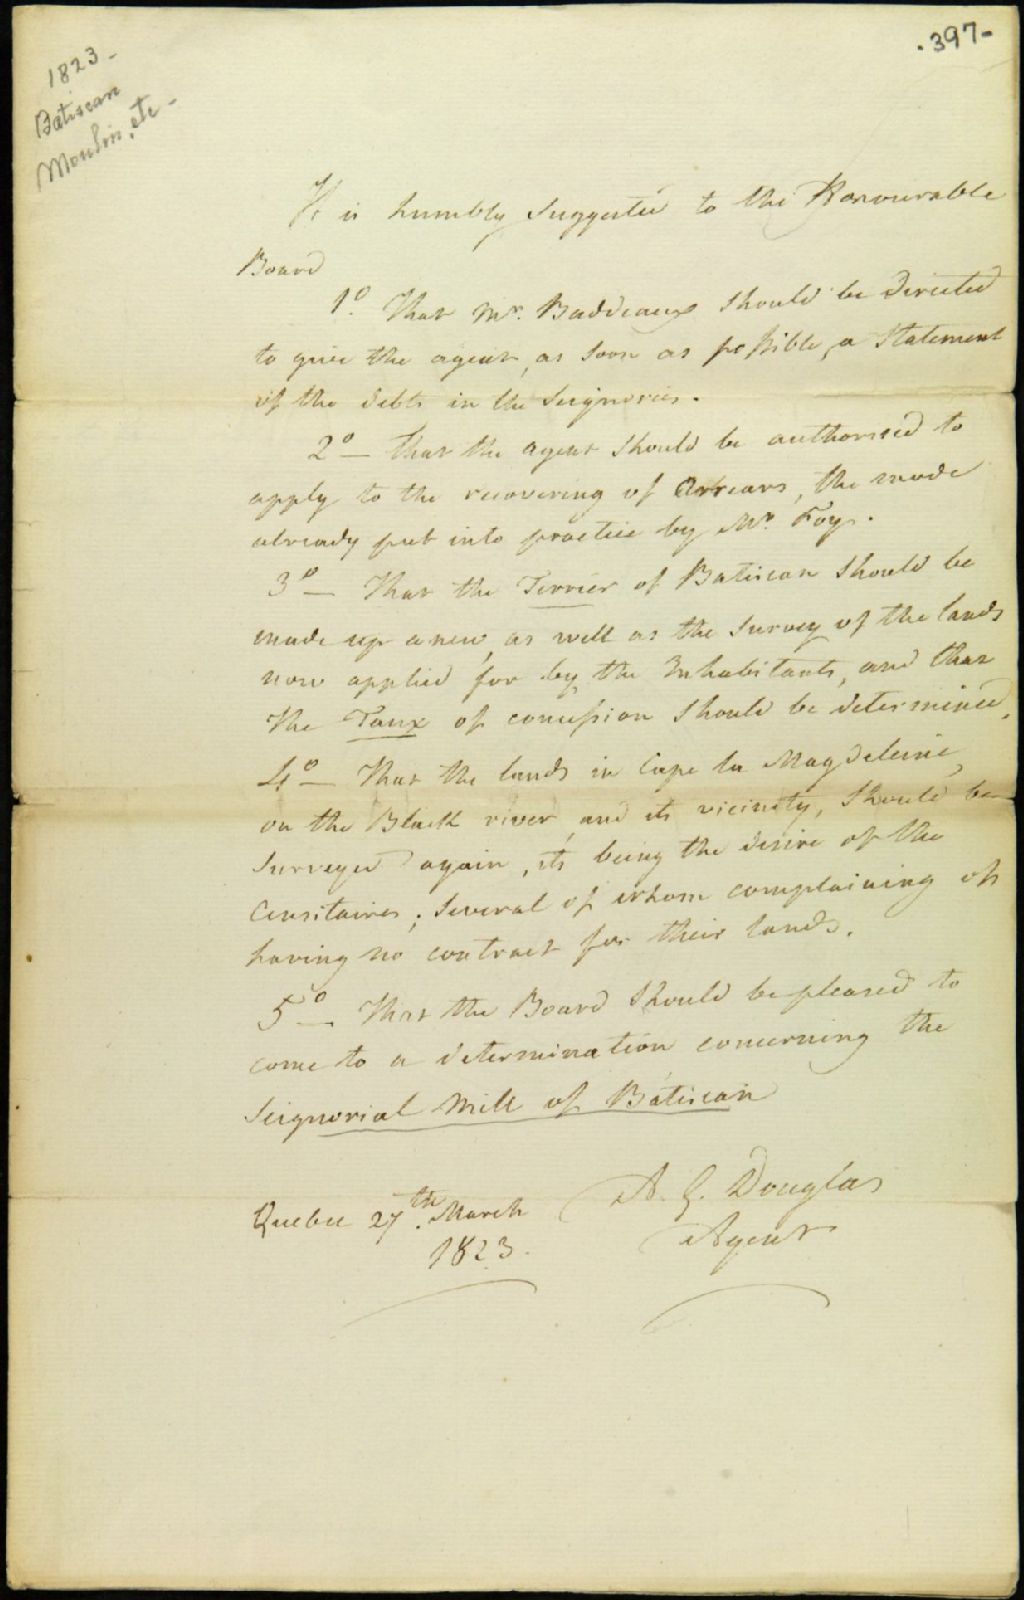 .397-
1823-
Batiscan
Moulin, etc-
It is humbly suggested to the Honourable
Board
1o. That Mr. Badeaux should be directed
to give the agent, as soon as possible, a Statement
of the debts in the Seignories.
2o — That the agent should be authorised to
apply to the recovering of Arrears, the mode
already put into practice by Mr. Foy.
3o — That the Terrier of Batiscan should be
made up anew, as well as the survey of the lands
now applied for by the Inhabitants, and that
the Taux of concession should be determined,
4o — That the lands in Cape la Magdeleine,
on the Black river, and its vicinity, should be
surveyed again, its being the desire of the
Censitaires; several of whom complaining of
having no contract for their lands.
5o — That the Board should be pleased to
come to a determination concerning the
Seignorial Mill of Batiscan
Quebec 27th. March
1823.
A. G. Douglas
Agent